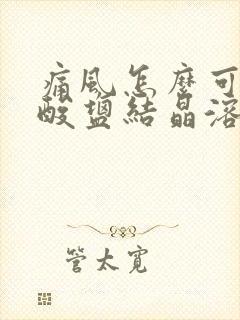 痛風怎麼可
酸鹽結晶溶
管太寬